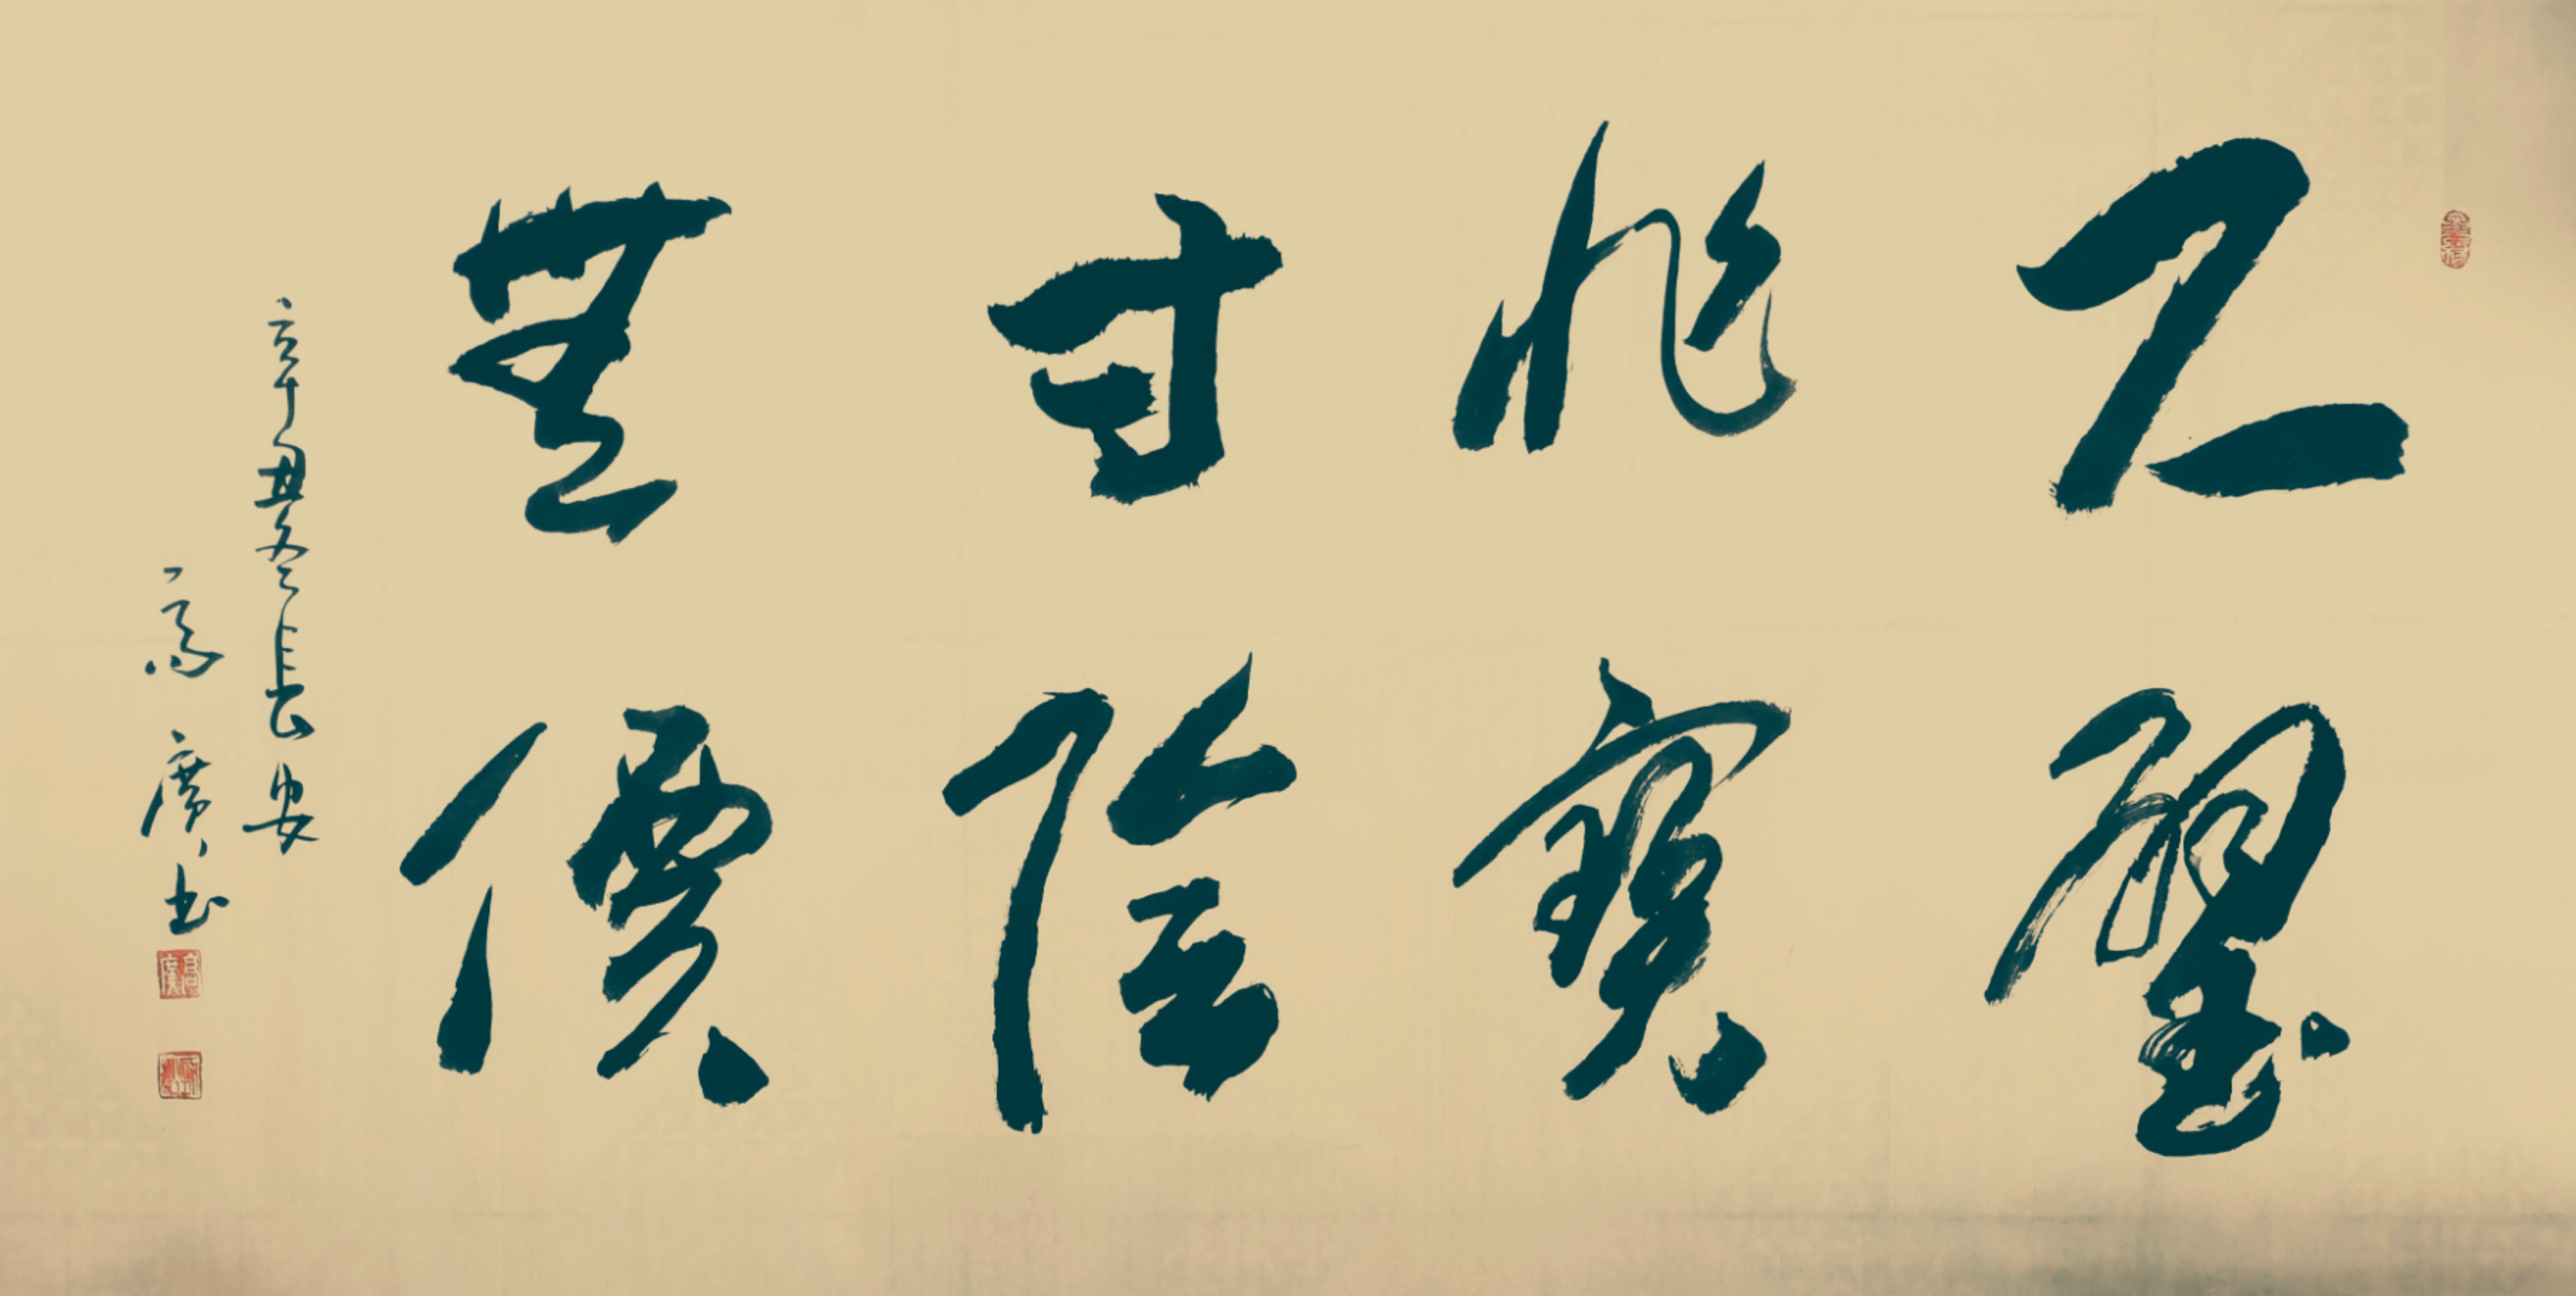 尺璧
非寶
寸陰
無價
辛丑冬長安
高廣書